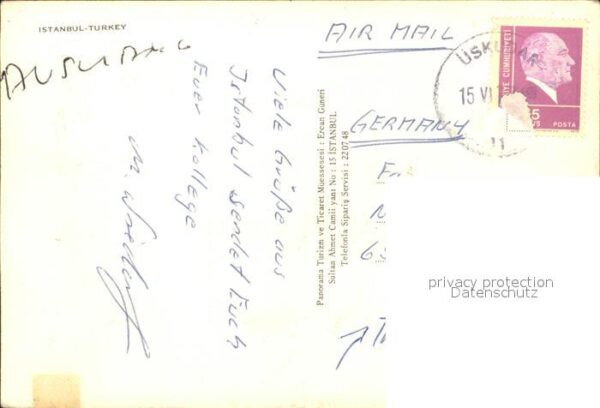 ISTANBUL-TURKEY
AUSLAND
Viele Grüße aus
Istanbul sendet Euch
Euer Kollege
Panorama Turizm ve Ticaret Müessesesi : Ercan Güneri
Sultan Ahmet Camii yanı No : 15 İSTANBUL
Telefonla Sipariş Servisi : 22 07 48
AIR MAIL
GERMANY
ÜSKÜDAR
15 VI
11
CUMHURİYETİ
POSTA
privacy protection
Datenschutz